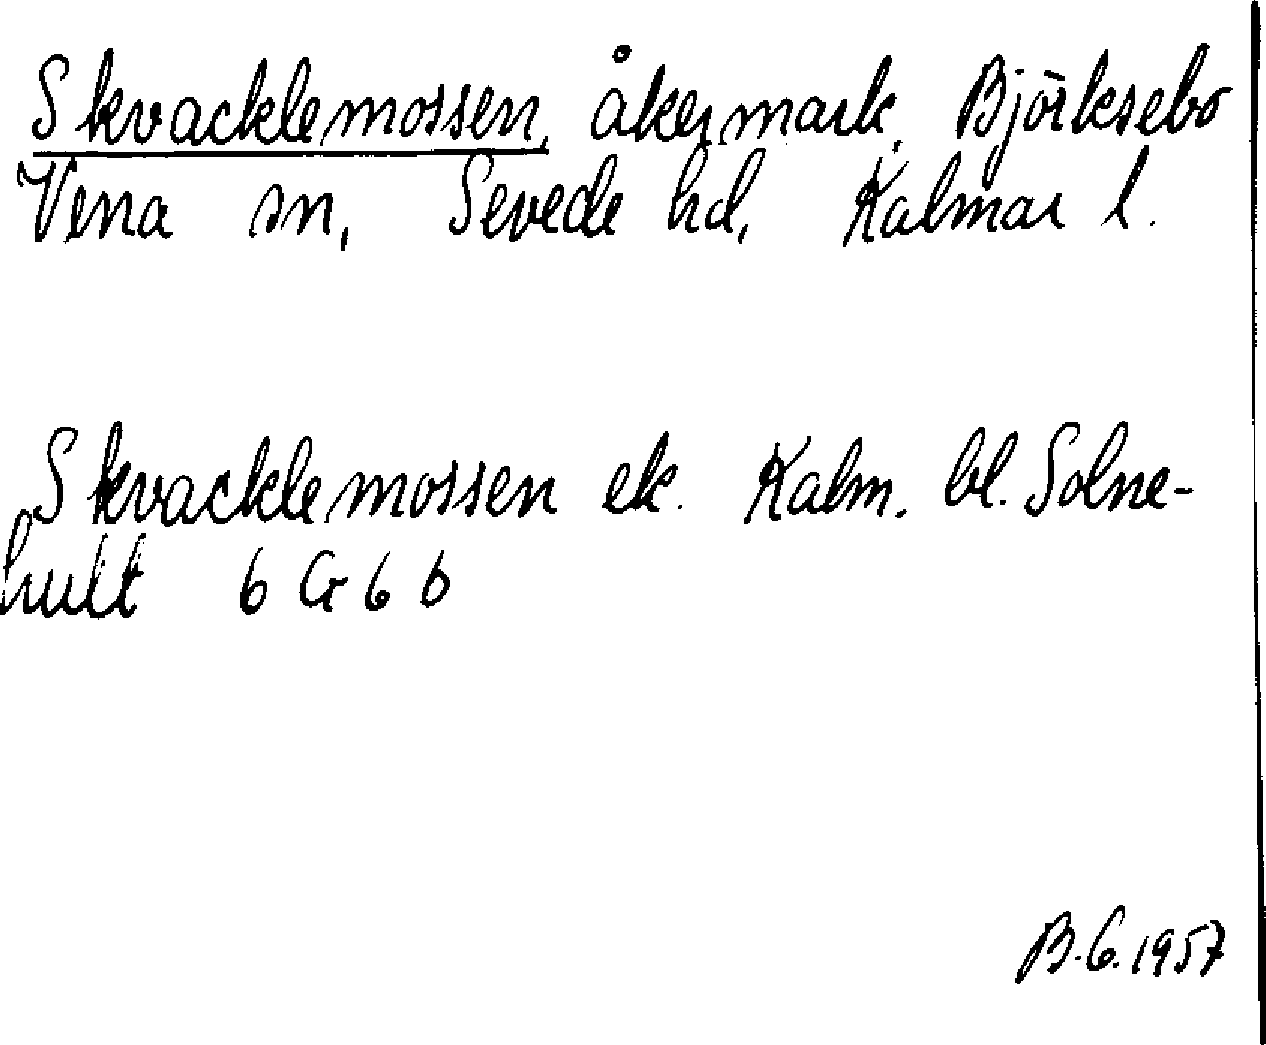 Skvacklemossen, åkermark, Björksebo
Vena sn, Sevede hd, Kalmar l.
Skvacklemossen ek. Kalm. bl. Solne-
hult 6 G 6 b
B.G. 1957